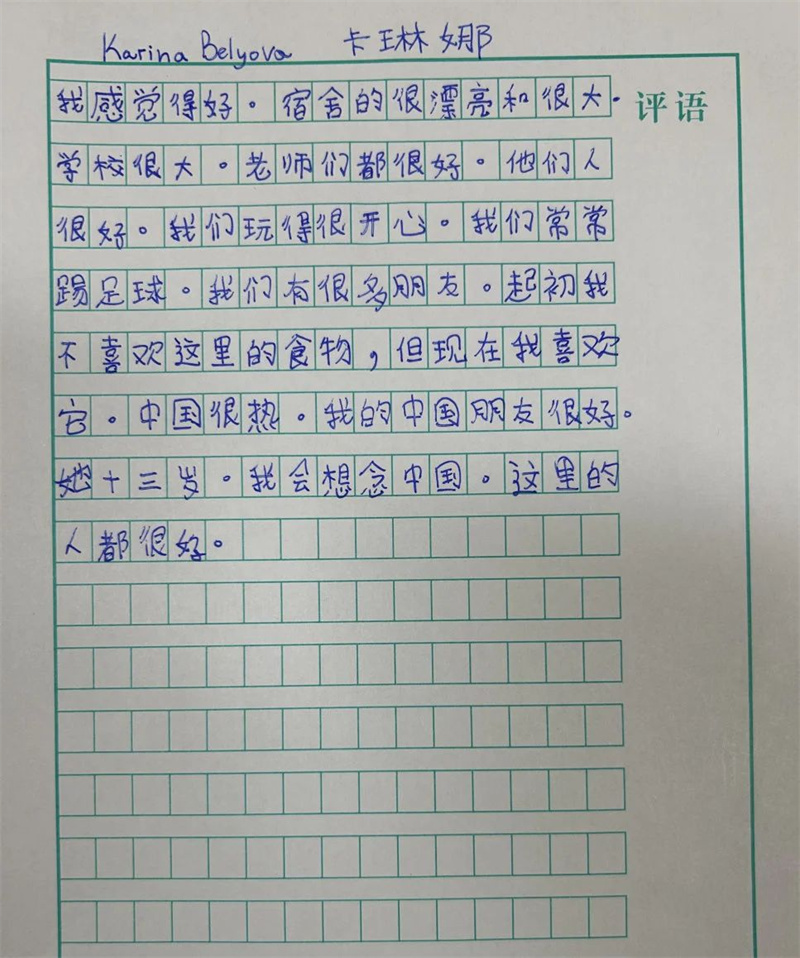 Karina Belyova 卡琳娜
评语
我感觉得好。宿舍的很漂亮和很大.
学校很大。老师们都很好。他们人
很好。我们玩得很开心。我们常常
踢足球。我们有很多朋友。起初我
不喜欢这里的食物,但现在我喜欢
它。中国很热。我的中国朋友很好。
她十三岁。我会想念中国。这里的
人都很好。